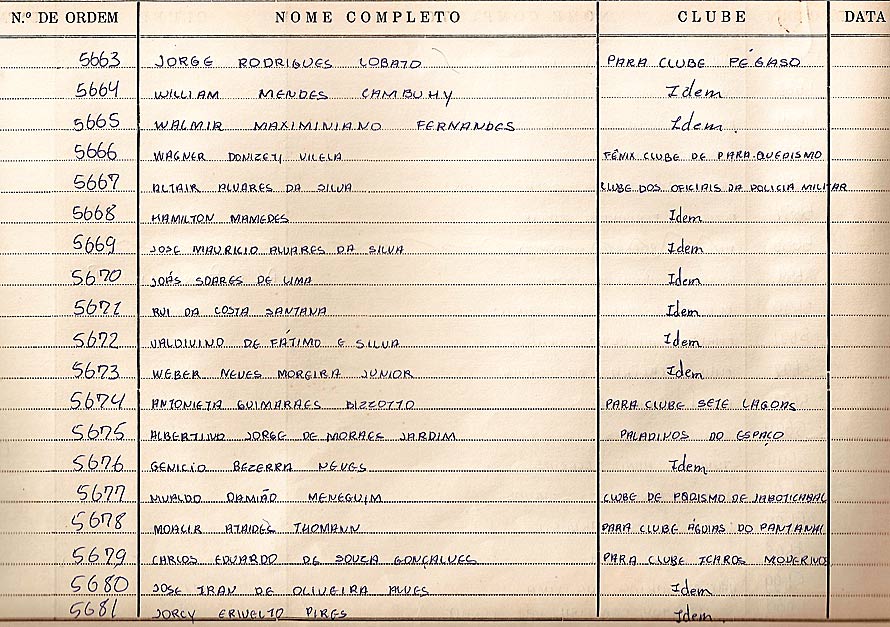 N.º DE ORDEM NOME COMPLETO CLUBE DATA
5663 JORGE RODRIGUES LOBATO PARA CLUBE PÉGASO
5664 WILLIAM MENDES CAMBUHY Idem
5665 WALMIR MAXIMINIANO FERNANDES Idem.
5666 WAGNER DONIZETI VILELA FÊNIX CLUBE DE PARA-QUEDISMO
5667 ALTAIR ALVARES DA SILVA CLUBE DOS OFICIAIS DA POLICIA MILITAR
5668 HAMILTON MAMEDES Idem
5669 JOSE MAURICIO ALVARES DA SILVA Idem
5670 JOÁS SOARES DE LIMA Idem
5671 RUI DA COSTA SANTANA Idem
5672 VALDIVINO DE FÁTIMO E SILVA Idem
5673 WEBER NEVES MOREIRA JUNIOR Idem
5674 ANTONIETA GUIMARAES BIZZOTTO PARA CLUBE SETE LAGOAS
5675 ALBERTINO JORGE DE MORAES JARDIM PALADINOS DO ESPAÇO
5676 GENICIO BEZERRA NEVES Idem
5677 NIVALDO DAMIÃO MENEGUIM CLUBE DE PÁDISMO DE JABOTICABAL
5678 MOACIR ATAIDES THOMANN PARA CLUBE ÁGUIAS DO PANTANAL
5679 CARLOS EDUARDO DE SOUZA GONÇALVES PARA CLUBE ICAROS MODERNOS
5680 JOSE IRAN DE OLIVEIRA ALVES Idem
5681 JORCY ERIVELTO PIRES Idem